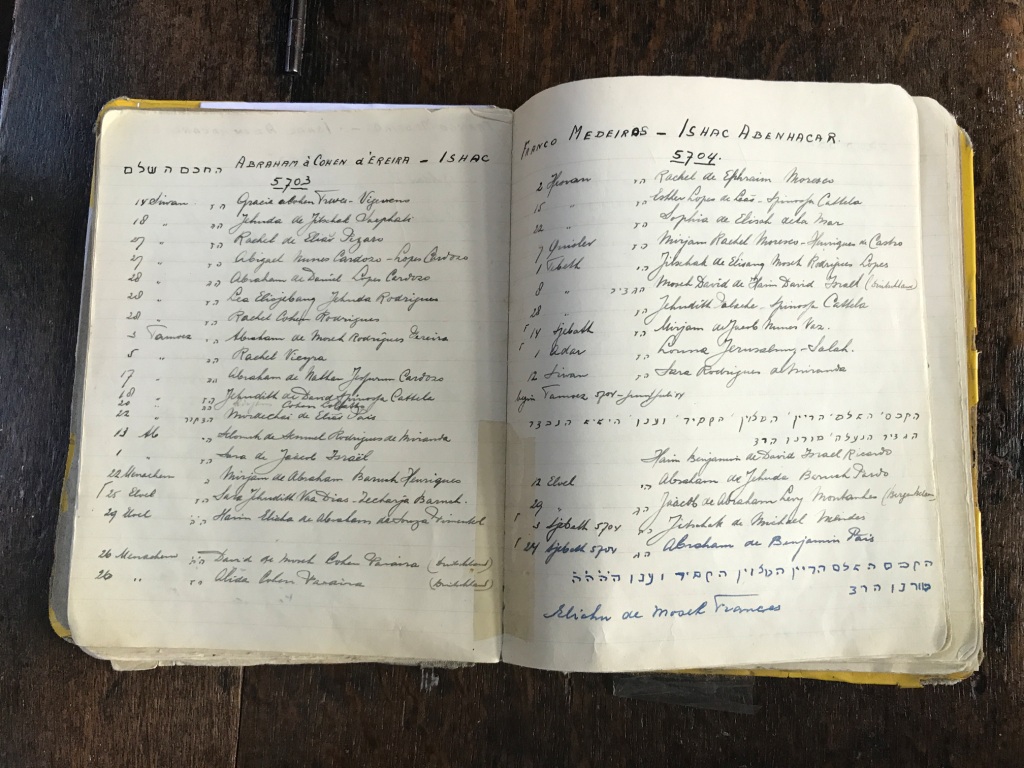 החכם השלם ABRAHAM à COHEN d'EREIRA – ISHAC
5703
14 Sivan הז Gracia Cohen
18 " הז Jehuda de Jitschak
27 " הז Rachel de Elias Pizaro
27 " הז Abigael Nunes Cardozo - Lopes Cardozo
28 " הז Abraham de Daniel Lopes Cardozo
28 " הז Lea Jehuda Rodrigues
28 " הז Rachel Cohen Rodrigues
3 Tamoez הז Abraham de Moseh Rodrigues Pereira
5 " הז Rachel Vieyra
17 " הז Abraham de Nathan Jessurun Cardozo
18 " הז Jehudith de David Spinosa Cattela
20 " Cohen
22 " Mordechai de Elias Pais
13 Ab Selomoh de Semuel Rodrigues de Miranda
1 " הז Sara de Jacob Israël
22 Menachem הז Mirjam de Abraham Baruch Henriques
25 Elul הז Sara Jehudith Vaz Dias - Zecharja Baruch.
29 Elul Elisha de Abraham de Souza Pimentel
26 Menachem David de Moseh Cohen Paraira (Duitschland)
26 " הז Alida Cohen Paraira (Duitschland)
FRANCO MEDEIROS – ISHAC ABENHACAR.
5704.
2 הז Rachel de Ephraim Moresco
15 " הז Esther Lopes de Leao - Spinosa Cattela
22 " הז Sophia de Elisch dela Mar
7 Quislev הז Mirjam Rachel Moresco - Henriques de Castro
1 Tebeth הז Jitschak de Moseh Rodrigues Lopes
8 " Moseh David de Haim David Israel (Duitschland)
28 " הז Jehudith Palache - Spinosa Cattela
14 Sjebath הז Mirjam de Jacob Nunes Vaz.
1 Adar הז Jerusalmy - Salah.
12 Sivan הז Sara Rodrigues de Miranda
begin Tamoez 5704 - Juni/Juli 44
הגביר הנעלה
Haim Benjamin de David Israel Ricardo
12 Elul Abraham de Jehuda Baruch Pardo
29 " Jacob de Abraham Levy Montanhes (Bergenbelsen)
3 Sjebath 5704 Jitschak de Michael Mendes
24 Sjebath 5704 Abraham de Benjamin Pais
מורנו הרב
Elichu de Moseh Frances